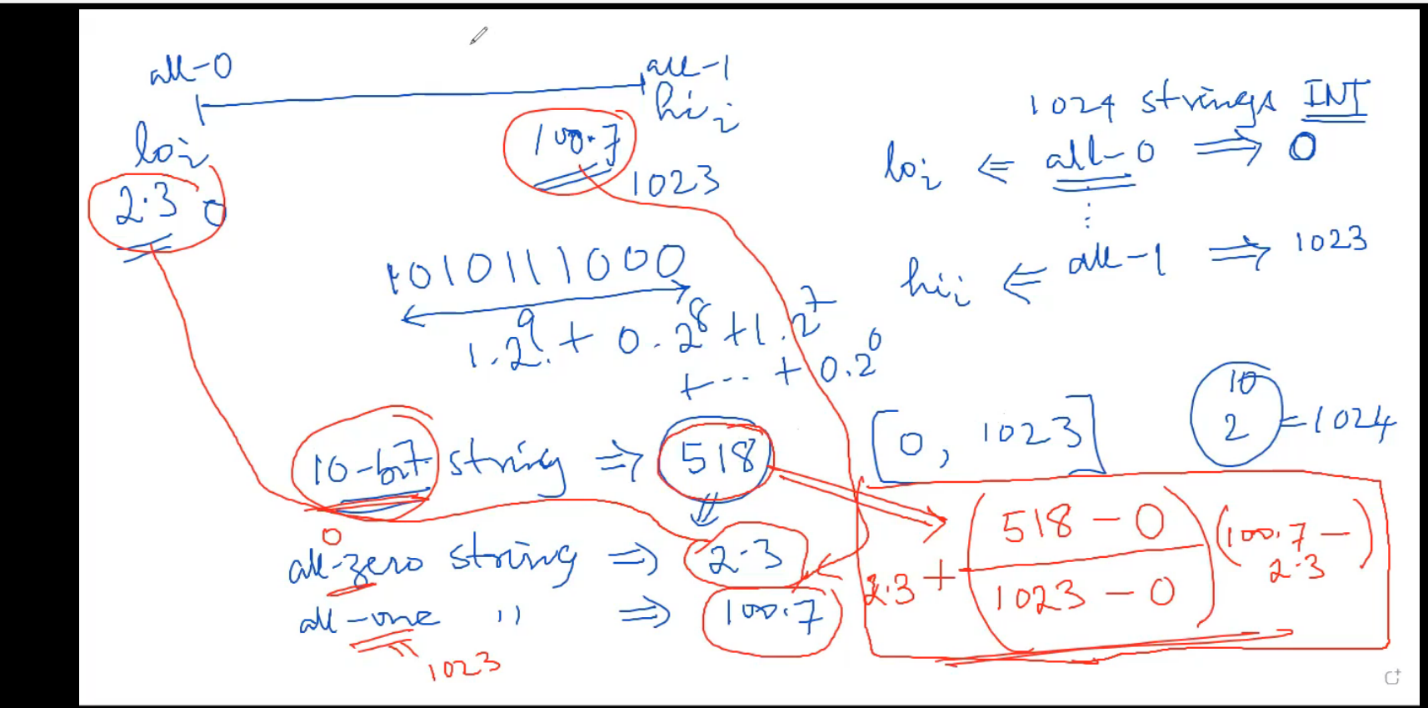 all-0
all-1
lo_i
hi_i
2.3 0
100.7
1023
1024 strings INT
lo_i ⇐ all-0 ⇒ 0
⋮
hi_i ⇐ all-1 ⇒ 1023
1010111000
1.2^9 + 0.2^8 + 1.2^7
+ ... + 0.2^0
[0, 1023]
2^10 = 1024
10-bit string ⇒ 518
⇓
0
all-zero string ⇒ 2.3
all-one " ⇒ 100.7
1023
2.3 + (518 - 0 / 1023 - 0) (100.7 - 2.3)